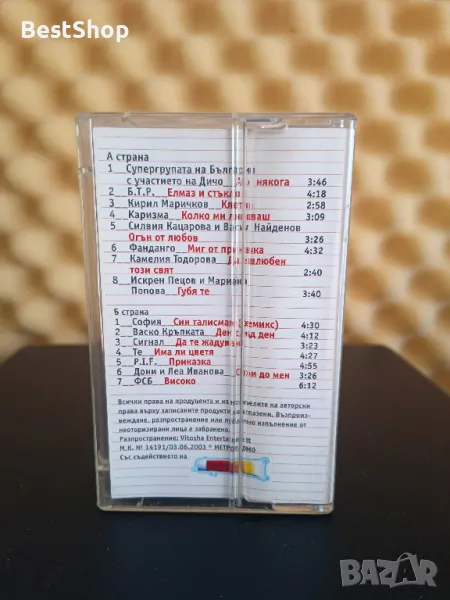 BestShop
А страна
1 Супергрупата на България
с участието на Дичо някога 3:46
2 Б.Т.Р. Елмаз и стъкло 4:18
3 Кирил Маричков 2:58
4 Каризма Колко ми липсваш 3:09
5 Силвия Кацарова и Васил Найденов
Огън от любов 3:26
6 Фанданго Миг от приказка 4:32
7 Камелия Тодорова влюбен
този свят 2:40
8 Искрен Пецов и Мариана
Попова Губя те 3:40
Б страна
1 София Син талисман (ремикс) 4:30
2 Васко Кръпката Ден след ден 4:12
3 Сигнал Да те жадувам 3:23
4 Те Има ли цветя 4:27
5 P.I.F. Приказка 4:55
6 Дони и Леа Иванова до мен 3:26
7 ФСБ Високо 6:12
Всички права на продуцента и на носителите на авторски
права върху записаните продукти са запазени. Възпроиз-
веждане, разпространение или публично изпълнение от
неоторизирани лица е забранено.
Разпространение: Vitosha Entertainment
М.К. № 14191/03.06.2003
Със съдействието на
BAZAR